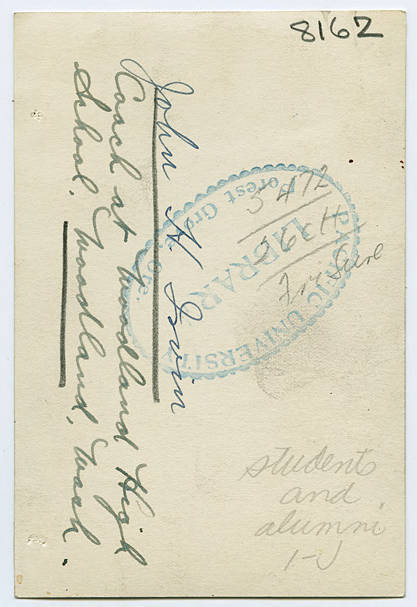 8162
John H Irwin
Coach at Woodland High
School, Woodland, Wash.
PACIFIC UNIVERSITY
LIBRARY
Forest Grove, Ore.
5472
students
and
alumni
1-J